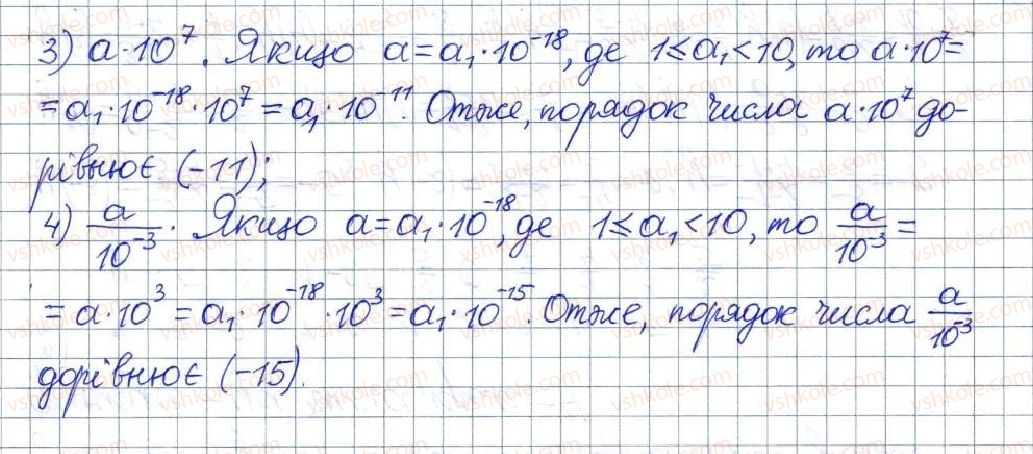 3) a·10⁷. Якщо a=a₁·10⁻¹⁸, де 1≤a₁<10, то a·10⁷=
=a₁·10⁻¹⁸·10⁷=a₁·10⁻¹¹. Отже, порядок числа a·10⁷ до-
рівнює (-11);
4) a/10⁻³. Якщо a=a₁·10⁻¹⁸, де 1≤a₁<10, то a/10⁻³=
=a·10³=a₁·10⁻¹⁸·10³=a₁·10⁻¹⁵. Отже, порядок числа a/10⁻³
дорівнює (-15).
vshkole.com